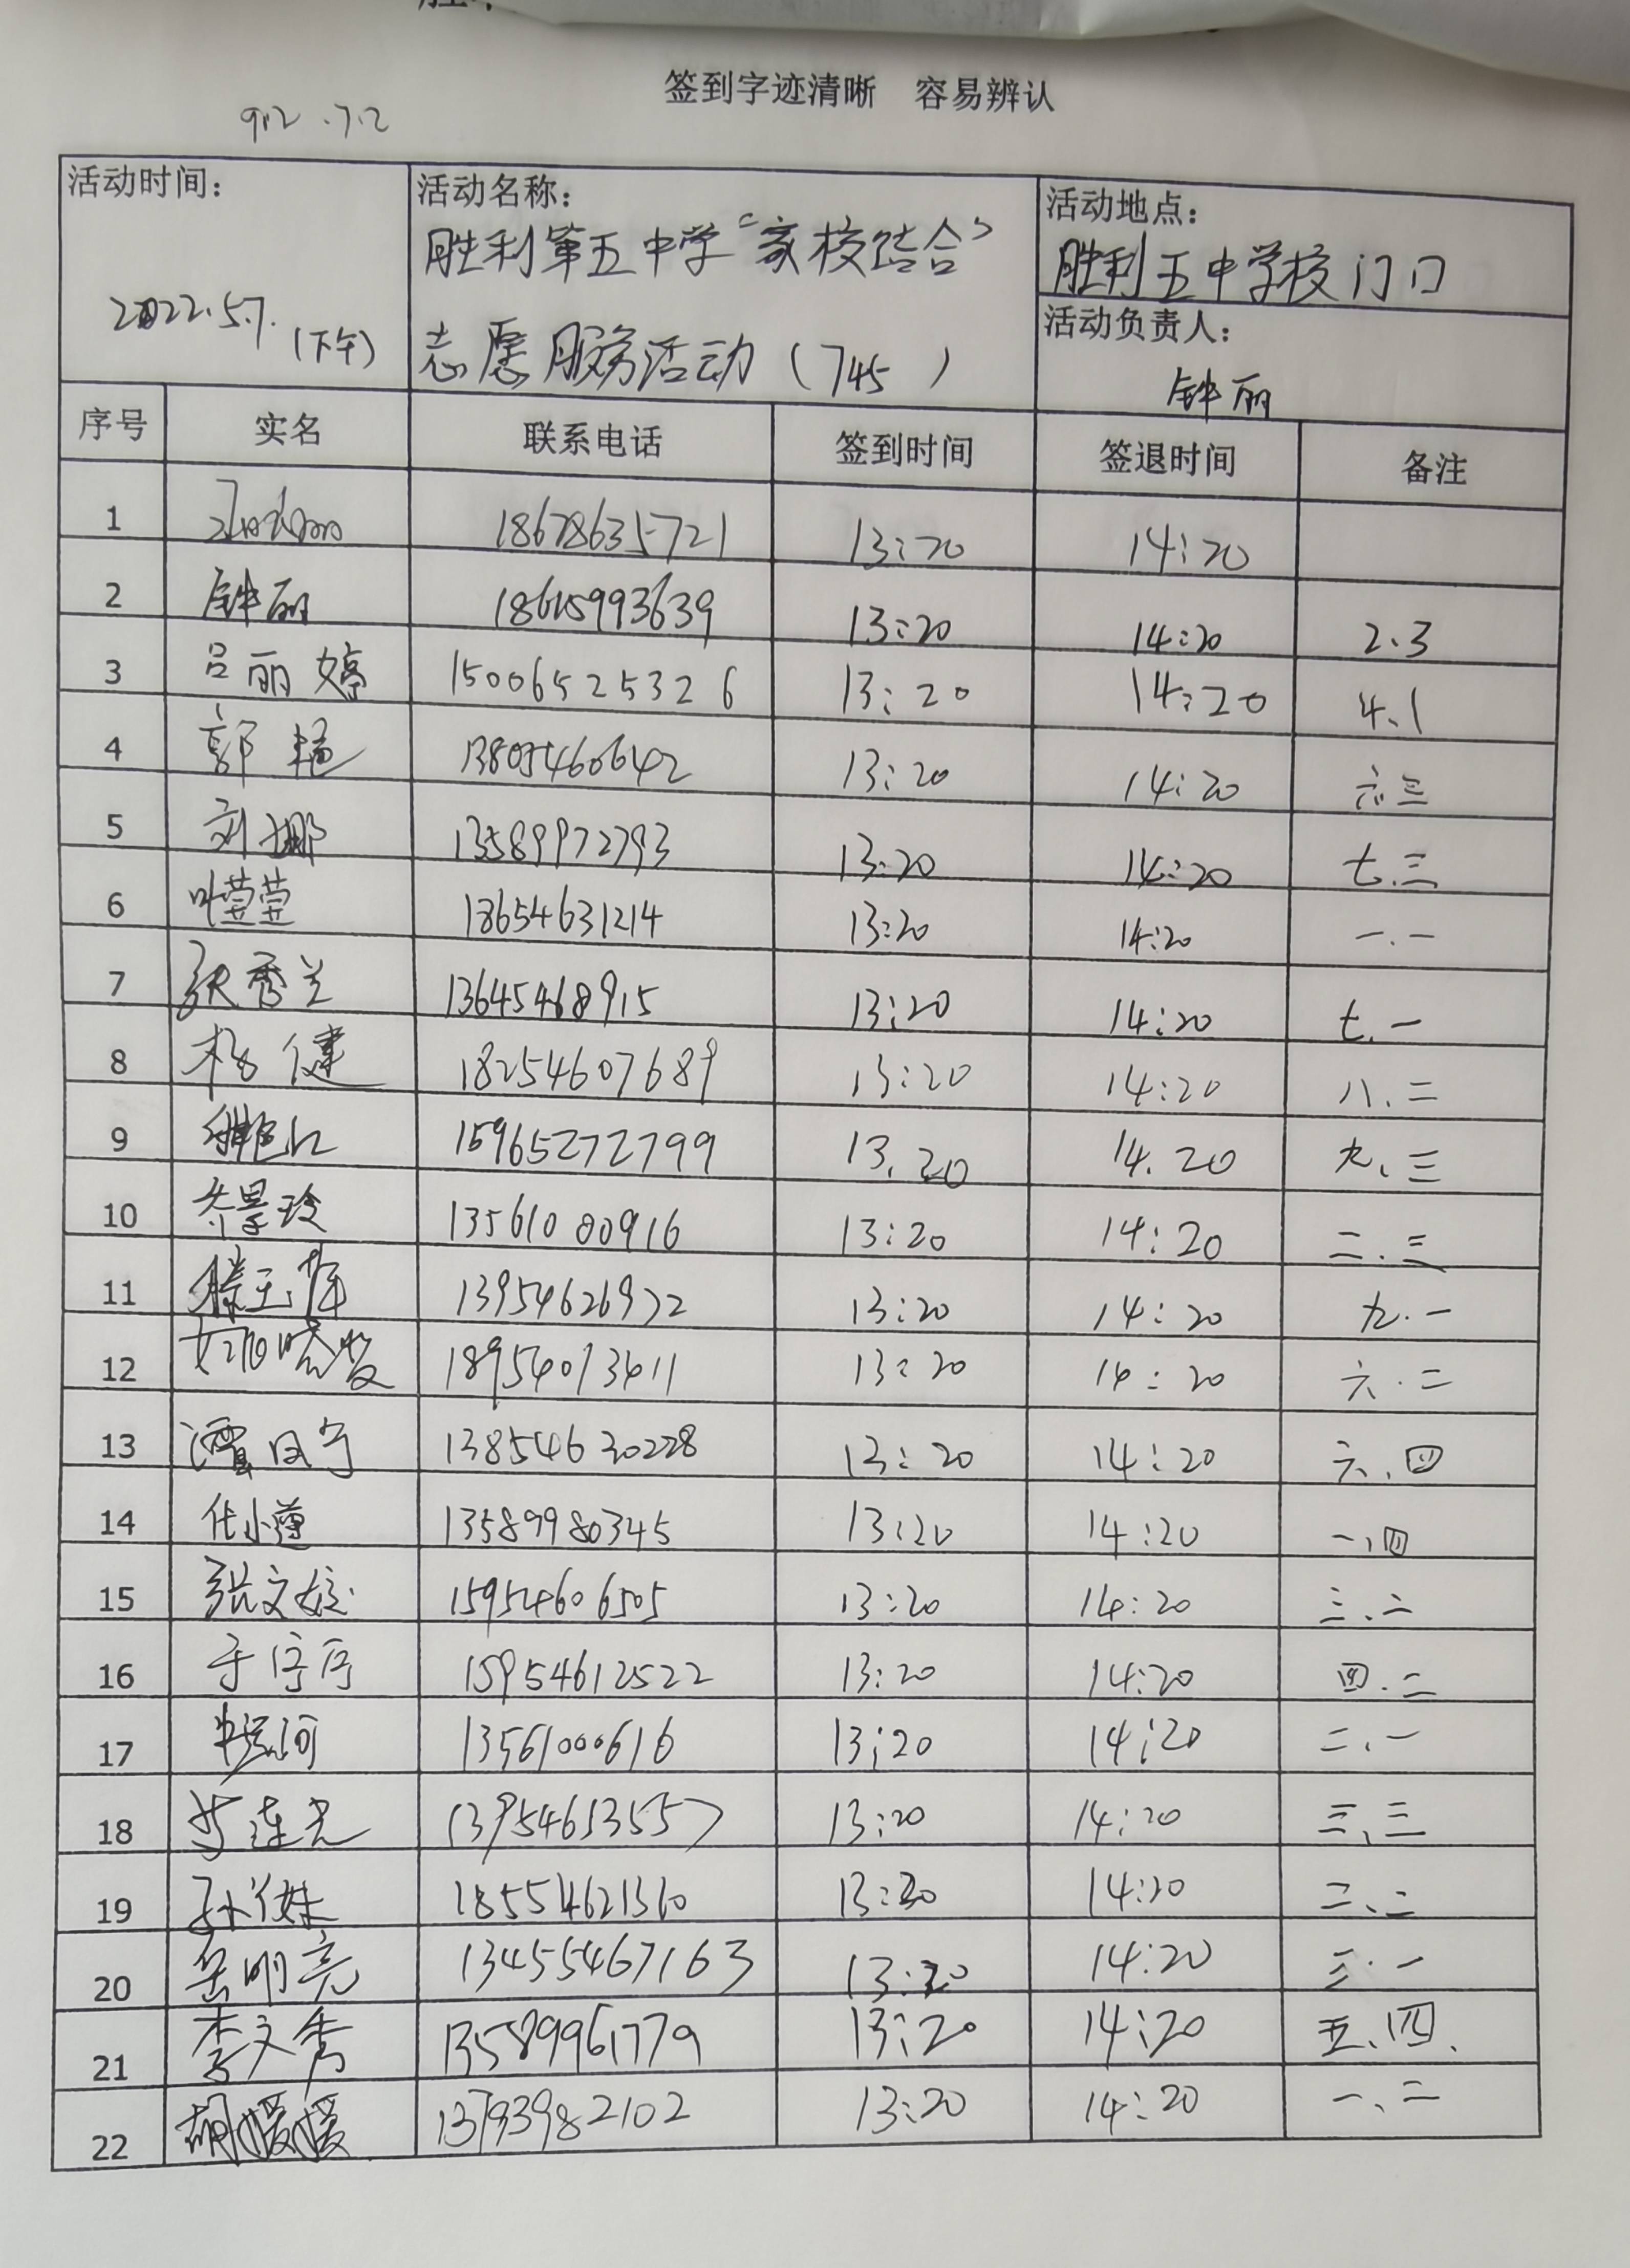 签到字迹清晰 容易辨认
912.7.2
活动时间：
2022.5.7.
(下午)
活动名称：
胜利第五中学“家校结合”
志愿服务活动（745）
活动地点：
胜利五中学校门口
活动负责人：
钟丽
序号 实名 联系电话 签到时间 签退时间 备注
1 18678635721 13:20 14:20
2 钟丽 18615993639 13:20 14:20 2.3
3 吕丽婷 15006525326 13:20 14:20 4.1
4 郭艳 13805460642 13:20 14:20 六.三
5 刘娜 13589972793 13:20 14:20 七.三
6 叶莹莹 18654631214 13:20 14:20 一.一
7 张秀兰 13645468915 13:20 14:20 七.一
8 杨健 18254607689 13:20 14:20 八.二
9 15965272799 13.20 14.20 九、三
10 景玲 13561080916 13:20 14:20 二.三
11 滕玉 13954626972 13:20 14:20 九.一
12 18954013411 13:20 14:20 六.二
13 13854630228 13:20 14:20 六.四
14 任小莲 13589980345 13:20 14:20 一、四
15 张文 15954606505 13:20 14:20 三.二
16 于 15954612522 13:20 14:20 四.二
17 河 13561000616 13:20 14:20 二、一
18 李连光 13954613557 13:20 14:20 三、三
19 孙 18554621360 13:20 14:20 二、二
20 岳明亮 13455467163 13:20 14:20 三.一
21 李文秀 13589961779 13:20 14:20 五、四.
22 胡媛媛 13793982102 13:20 14:20 一、二